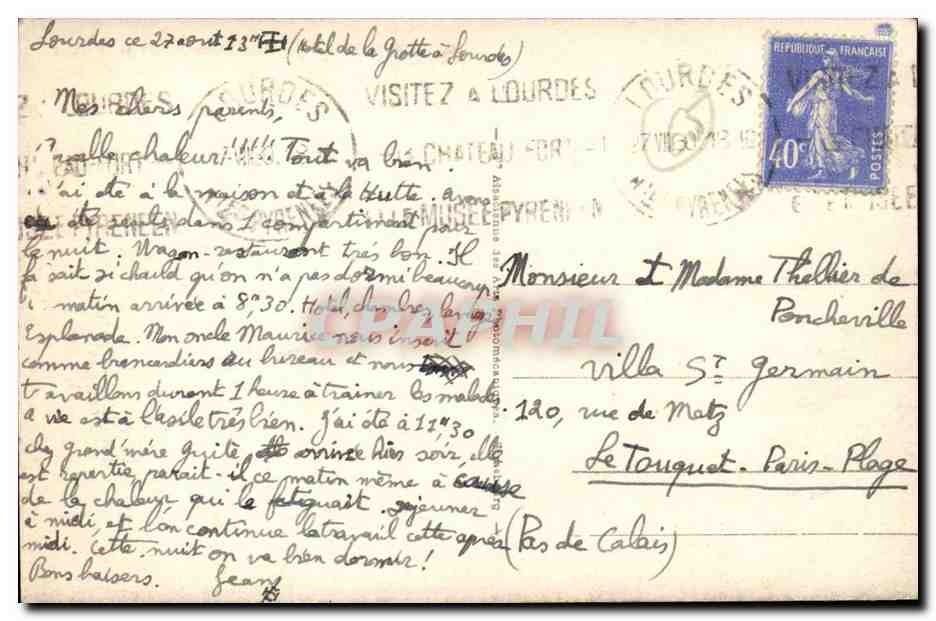 Lourdes ce 27 aout 13h (Hotel de la Grotte à Lourdes)
Mes chers parents,
quelle chaleur !!!! Tout va bien
J'ai été à la maison et à la Hutte. avons
dans 1 compartiment pour
la nuit. Wagon-restaurant très bon. Il
fesait si chauld qu'on n'a pas dormi beaucoup
matin arrivée à 8h,30. Hotel, chambres,
Esplanade. Mon oncle Maurice nous inscrit
comme brancardiers au bureau et nous
travaillons durant 1 heure à trainer les malades
est à l'asile très bien. J'ai été à 11h30
chez grand'mère arrivée hier soir, elle
est repartie parait-il ce matin même à cause
de la chaleur qui le fatiguait. dejeuner
à midi, et l'on continue le travail cette après
midi. Cette nuit on va bien dormir !
Bons baisers.
Jean
VISITEZ LOURDES
CHATEAU FORT
LE MUSÉE PYRENEEN
LOURDES
REPUBLIQUE FRANÇAISE
40c
POSTES
Monsieur et Madame Thellier de
Poncheville
villa St Germain
120, rue de Metz
Le Touquet-Paris-Plage
(Pas de Calais)
CPAPHIL